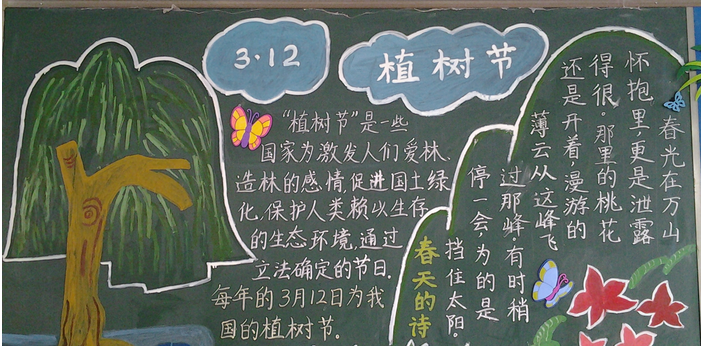 3·12
植树节
“植树节”是一些
国家为激发人们爱林、
造林的感情,促进国土绿
化,保护人类赖以生存
的生态环境,通过
立法确定的节日.
每年的3月12日为我
国的植树节.
春天的诗
春光在万山
怀抱里,更是泄露
得很。那里的桃花
还是开着,漫游的
薄云从这峰飞
过那峰,有时稍
停一会,为的是
挡住太阳。